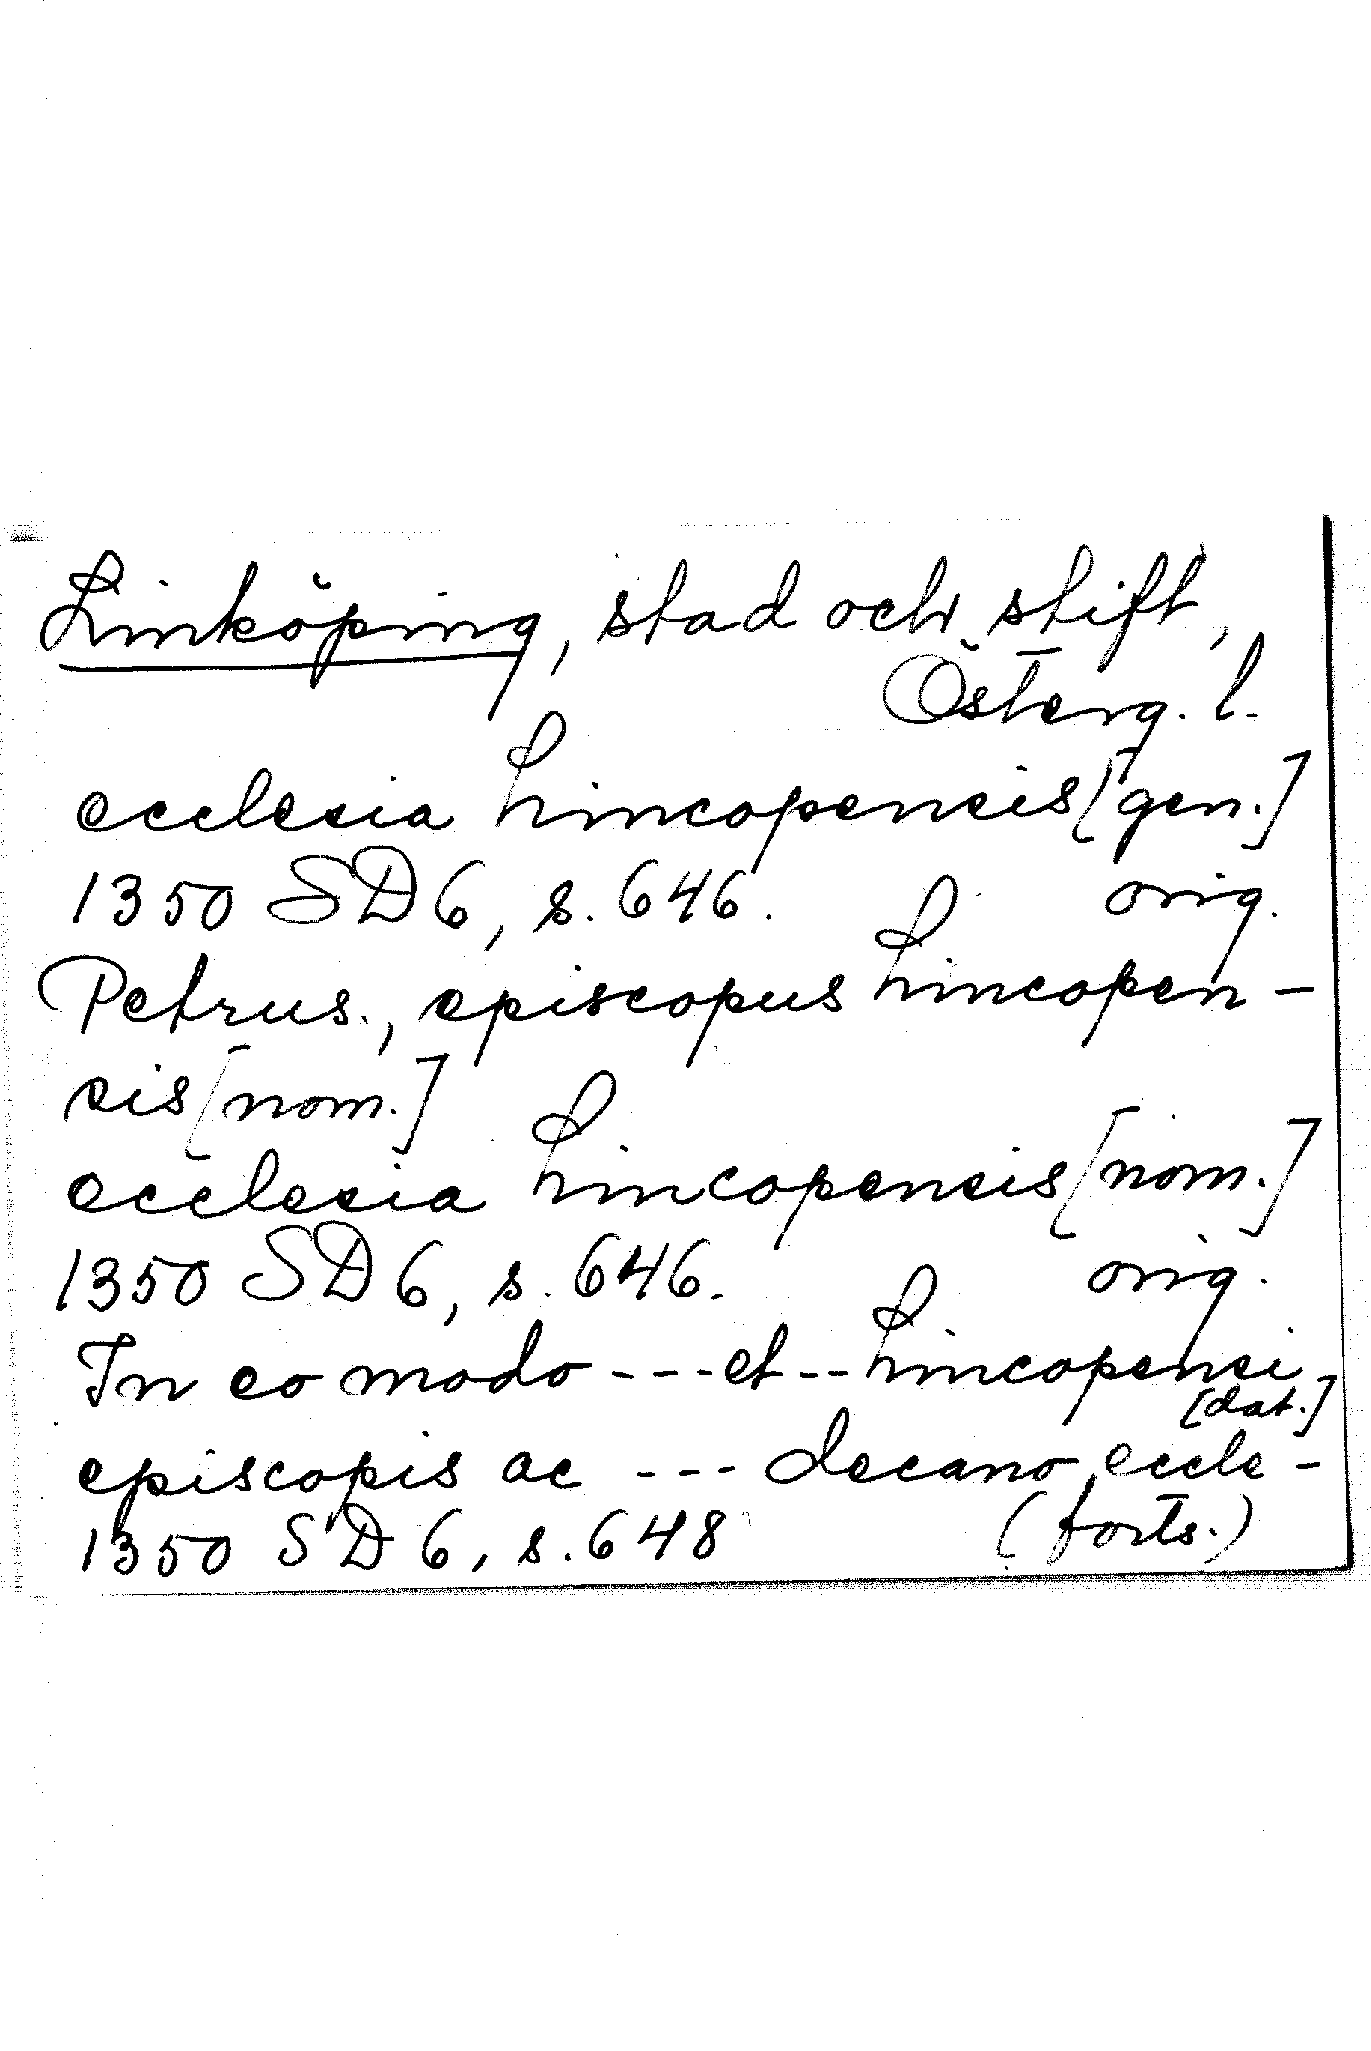 Linköping, stad och stift,
Österg. l.
ecclesia Lincopensis [gen.]
1350 SD 6, s. 646. orig.
Petrus., episcopus Lincopen-
sis [nom.]
ecclesia Lincopensis [nom.]
1350 SD 6, s. 646. orig.
In eo modo --- et -- Lincopensi
[dat.]
episcopis ac --- decano eccle-
1350 SD 6, s. 648 (forts.)